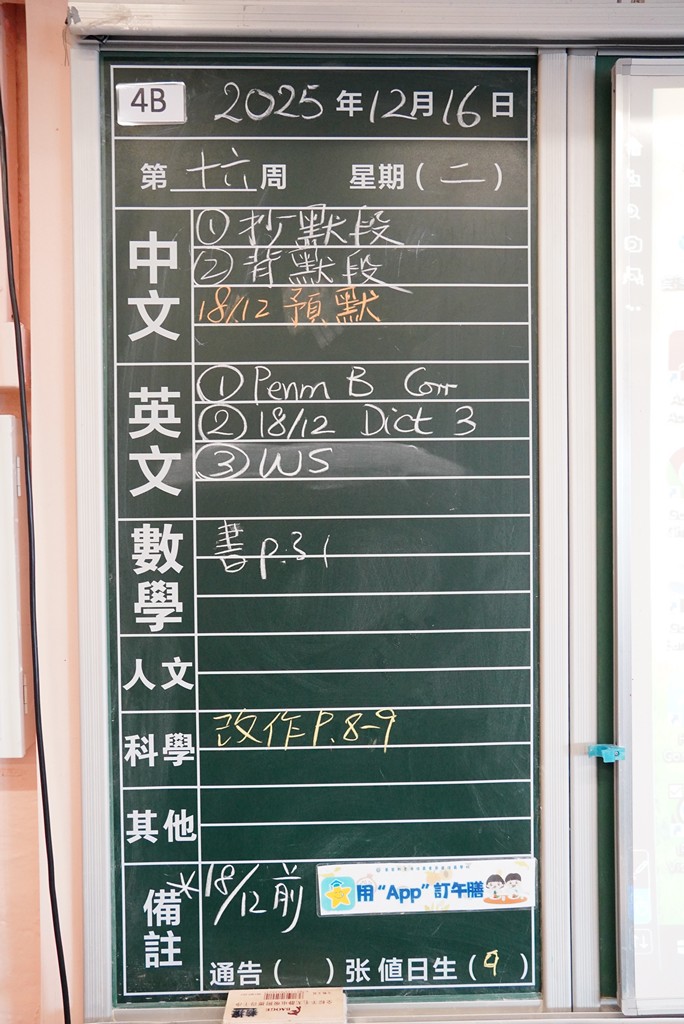 4B 2025年12月16日
第十六周 星期(二)
中文
①抄默段
②背默段
18/12 預默
英文
①Penm B Corr
②18/12 Dict 3
③WS
數學
書p.31
人文
科學
改作P.8-9
其他
備註
*18/12前
用“App”訂午膳
通告( )张 值日生(9)